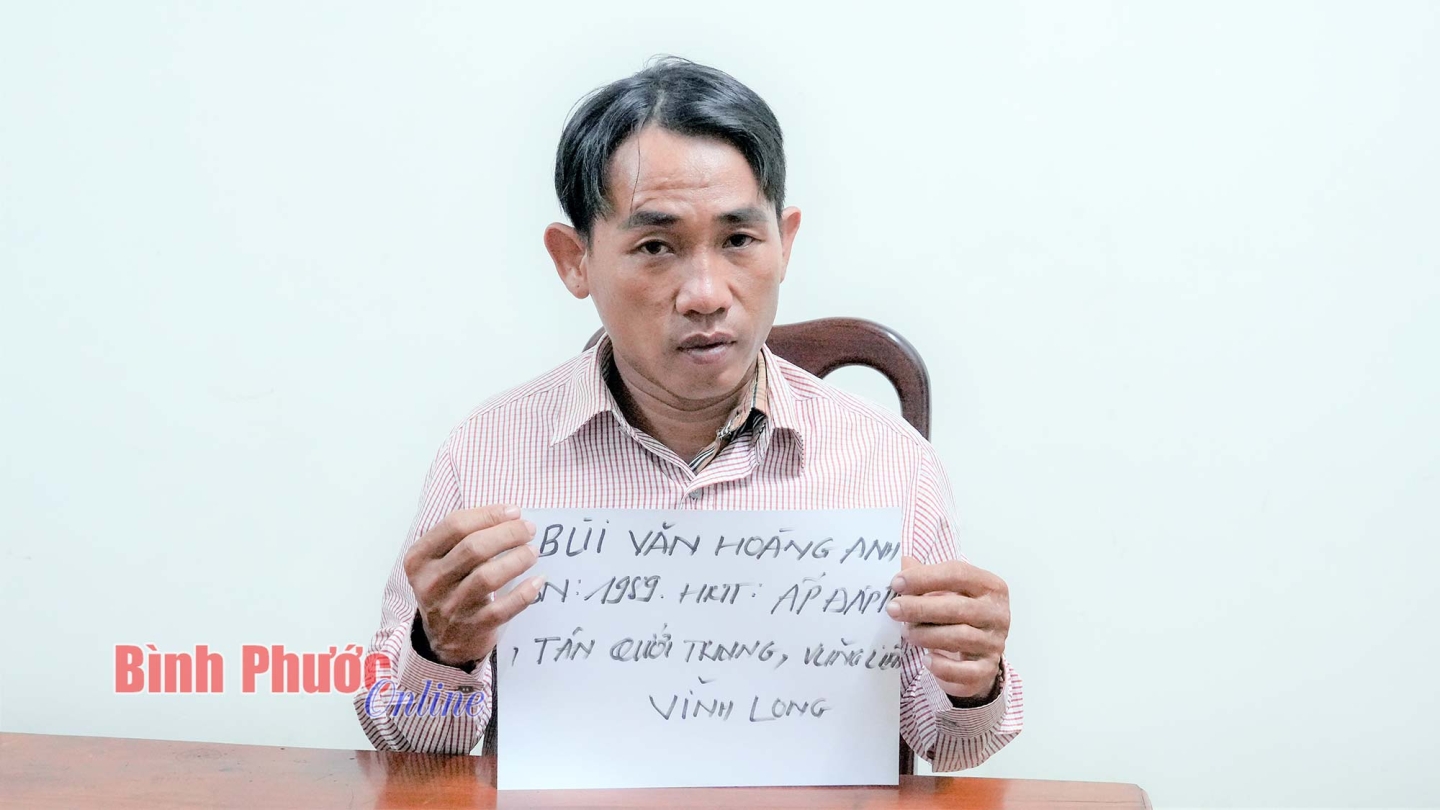 BÙI VĂN HOÀNG ANH
SN: 1989. HKTT: ẤP ĐẬP
, TÂN QUỚI TRUNG, VŨNG LIÊM
VĨNH LONG
Bình Phước
Online